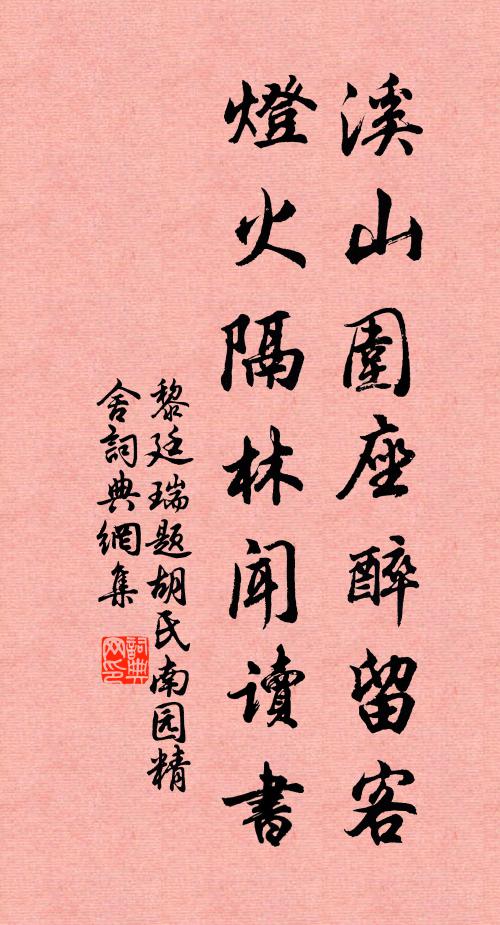 溪山圍座醉留客
燈火隔林聞讀書
黎廷瑞题胡氏南园精
舍詞典網集
詞典
网印